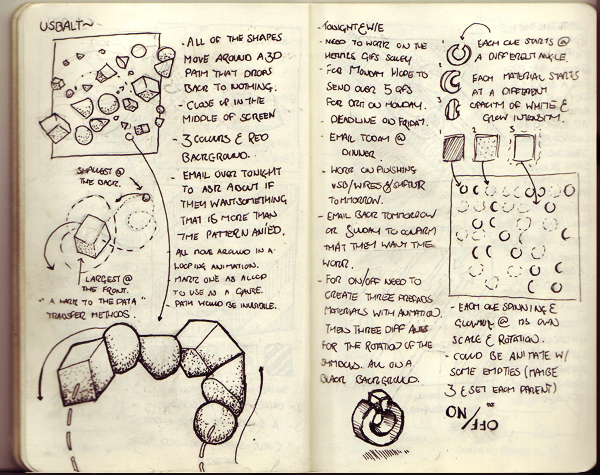 USBALT~
- ALL OF THE SHAPES
MOVE AROUND A 3D
PATH THAT DROPS
BACK TO NOTHING.
- CLOSE UP IN THE
MIDDLE OF SCREEN
- 3 COLOURS & RED
BACKGROUND.
- EMAIL OVER TONIGHT
TO ASK ABOUT IF
THEY WANT SOMETHING
THAT IS MORE THAN
THE PATTERN
ALL MOVE AROUND IN A
LOOPING ANIMATION.
MARK ONE AS
TO USE IN A
PATH WOULD BE INVISIBLE.
SMALLEST @
THE BACK.
LARGEST @
THE FRONT.
"A TO THE DATA"
TRANSFER METHODS.
- NEED TO WORK ON THE
GIFS
- FOR MONDAY HOPE TO
SEND OVER 5 GIFS
FOR ON MONDAY.
DEADLINE ON FRIDAY.
- EMAIL @
DINNER.
- WORK ON FINISHING
USB/WIRES &
TOMORROW.
- EMAIL BACK TOMORROW
OR SUNDAY TO CONFIRM
THAT THEY WANT THE
WORK.
- FOR ON/OFF NEED TO
CREATE THREE
MATERIALS WITH ANIMATION.
THEN THREE DIFF
FOR THE ROTATION OF THE
SYMBOLS. ALL ON A
BLACK BACKGROUND.
1 EACH ONE STARTS @
A DIFFERENT ANGLE.
2 EACH MATERIAL STARTS
AT A DIFFERENT
3 OPACITY OF WHITE &
GLOW INTENSITY.
1 2 3
- EACH ONE SPINNING &
GLOWING @ ITS OWN
SCALE & ROTATION.
- COULD BE ANIMATE W/
SOME EMPTIES (MAYBE
3 & SET EACH PARENT)
OFF/ON